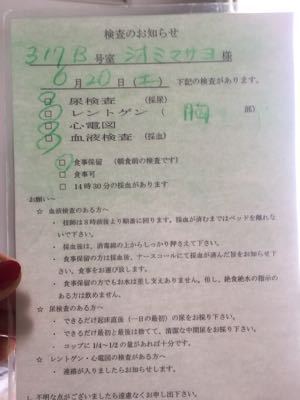 検査のお知らせ
317B 号室 シオミマサヨ 様
6月20日(土) 下記の検査があります。
□ 尿検査 (採尿)
□ レントゲン ( 胸 部)
□ 心電図
□ 血液検査 (採血)
□ 食事保留 (朝食前の検査です)
□ 食事可
□ 14時30分の採血があります
お願い~
☆ 血液検査のある方へ
・ 技師は8時頃より順番に回ります。採血が済むまではベッドを離れな
いで下さい。
・ 採血後は、消毒綿の上からしっかり押さえて下さい。
・ 食事保留の方は採血後、ナースコールにて採血が済んだ旨をお知らせ下
さい。食事をお運び致します。
・ 食事保留の方でもお水は差し支えありません。但し、絶食絶水の指示の
ある方は飲めません。
☆ 尿検査のある方へ
・ できるだけ起床直後(一日の最初)の尿をお採り下さい。
・ できるだけ最初と最後は捨てて、清潔な中間尿をお採り下さい。
・ コップに1/4~1/2の量があれば十分です。
☆ レントゲン・心電図の検査がある方へ
・ 連絡が入りましたらお知らせします。
不明な点がございましたら遠慮なくお申し出下さい。